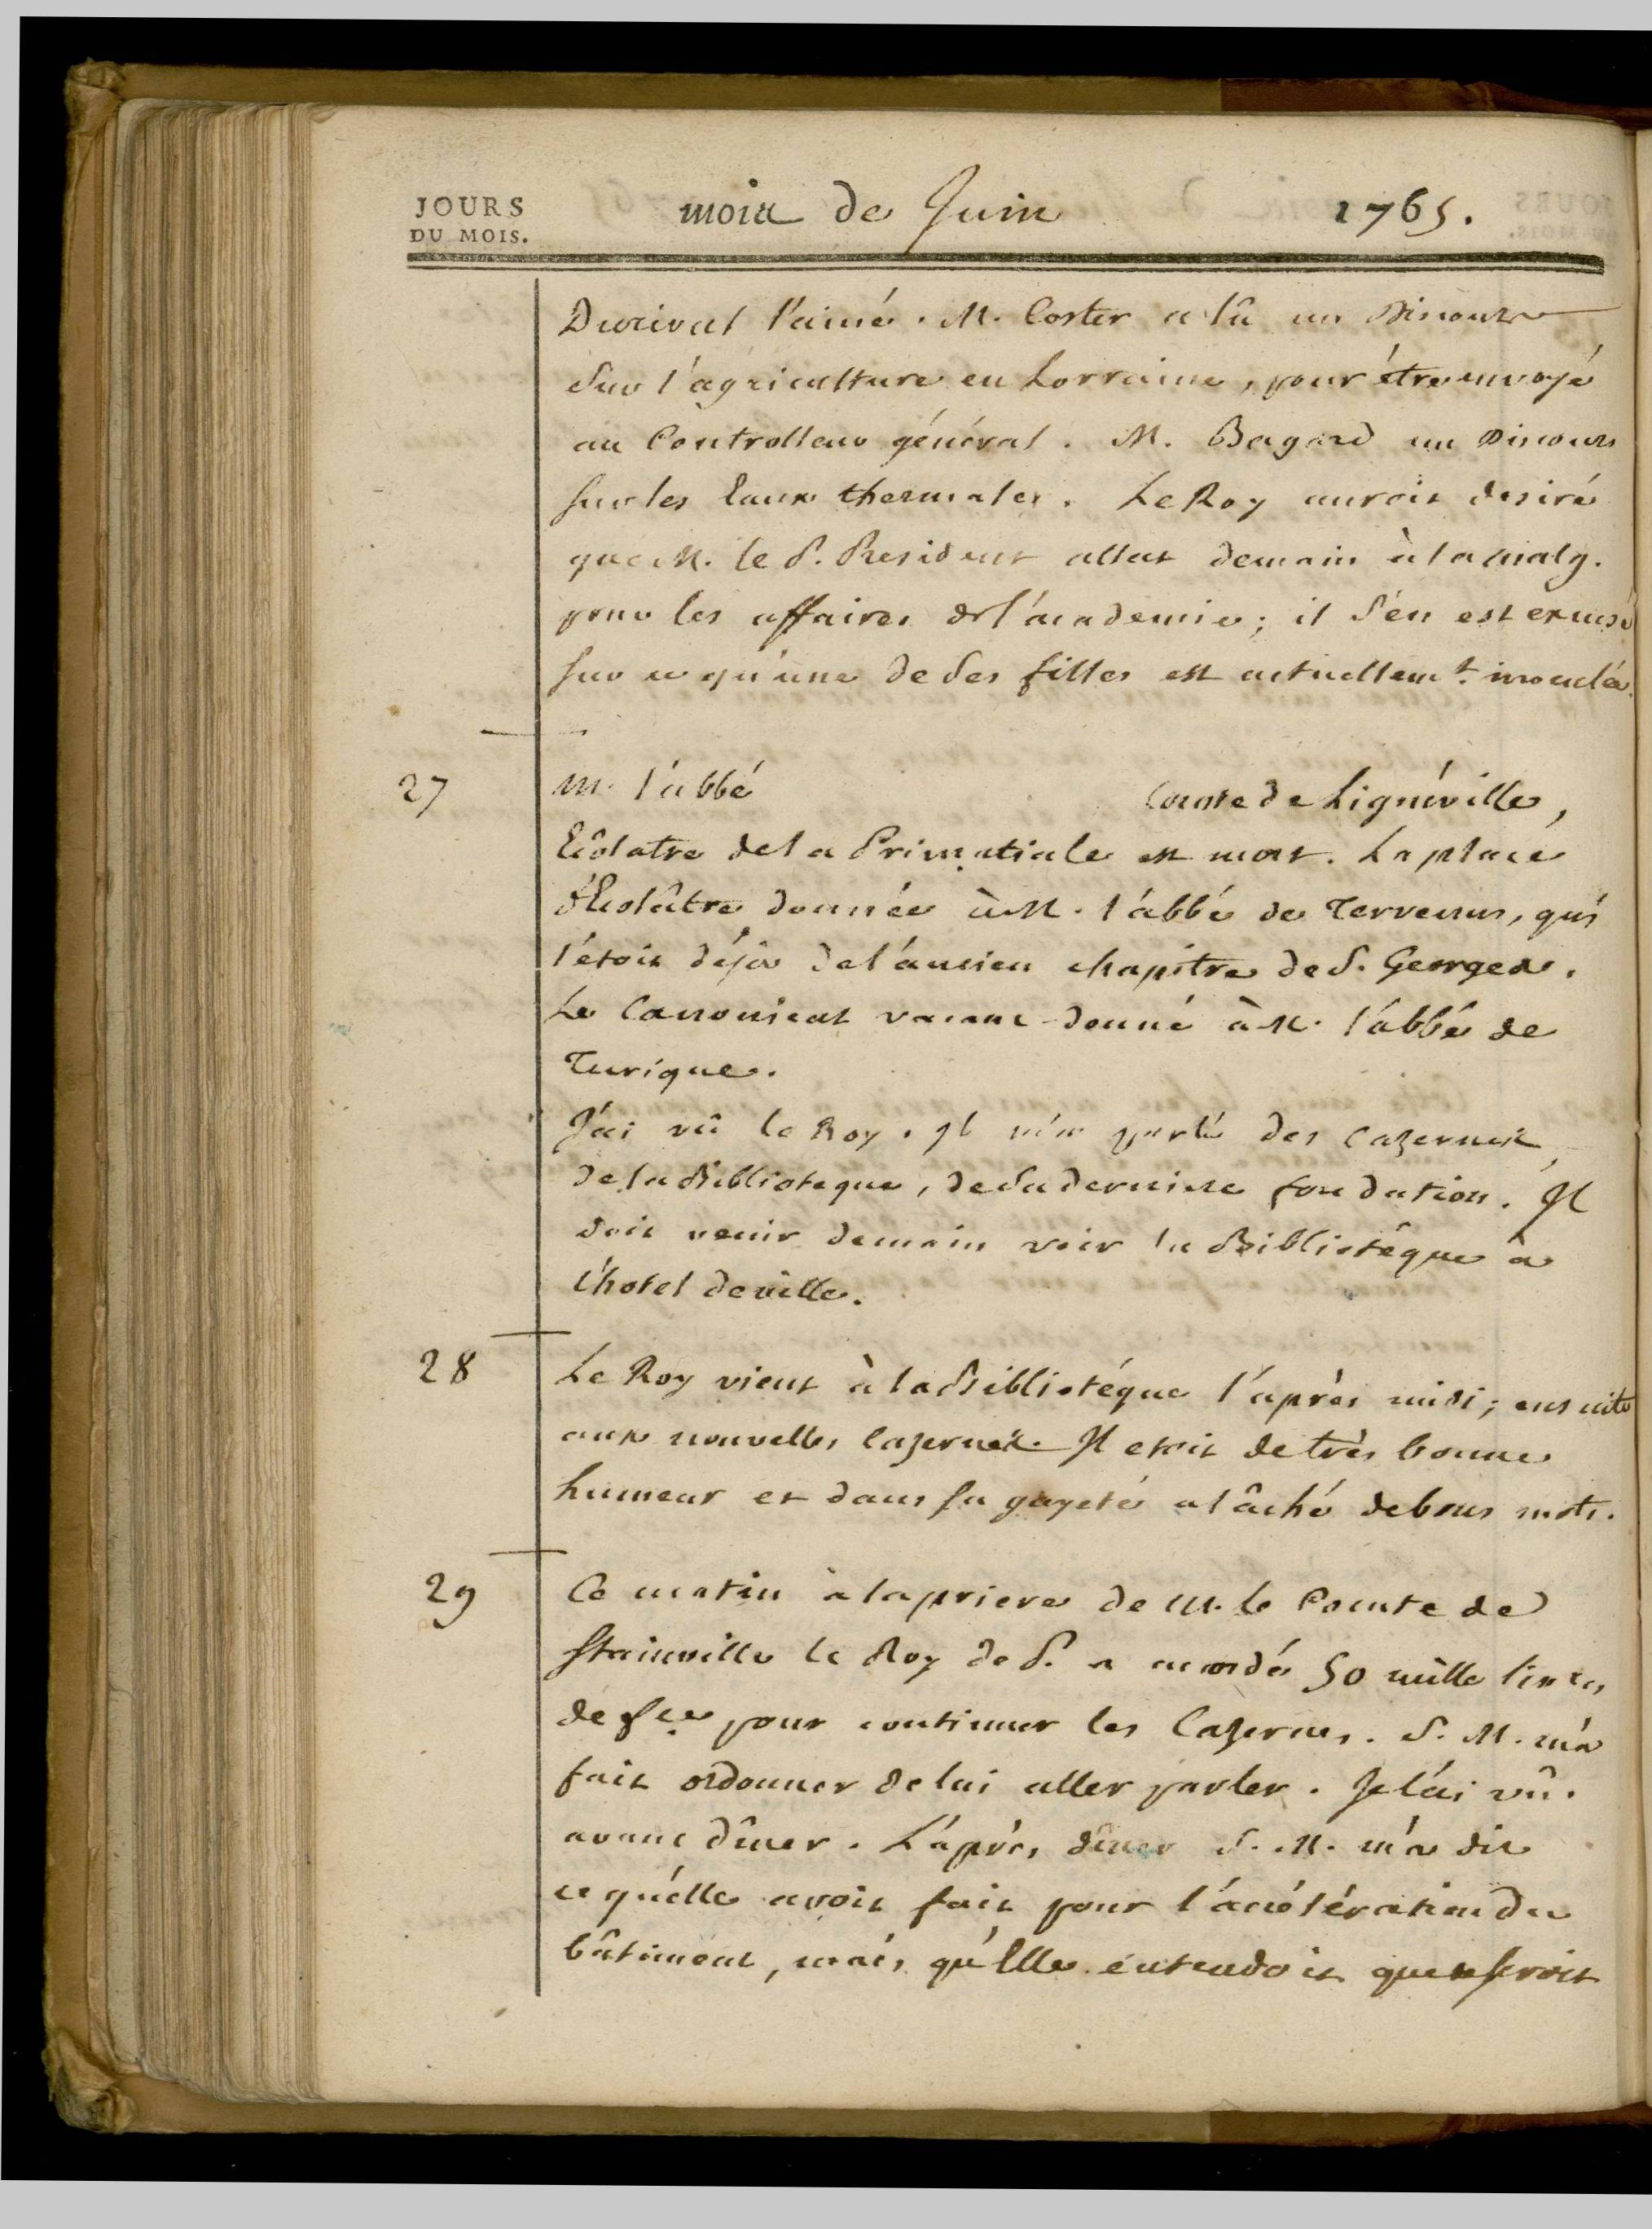 JOURS
DU MOIS.
mois de Juin 1765.
Durival l'ainé. M. Coster a lû un Discours
sur l'agriculture en Lorraine, pour être envoyé
au Controlleur général. M. Bagard un Discours
sur les Eaux thermales. Le Roy auroit desiré
que M. le P. President allat demain à la malg.
pour les affaires de l'academie; il s'en est excusé
sur ce qu'une de ses filles est actuellemt. inoculée.
27 M. l'abbé Comte de Lignéville,
Ecôlatre de la Primatiale est mort. La place
d'Ecolâtre donnée à M. l'abbé de Tervenus, qui
l'étoit déja de l'ancien chapitre de S. Georges.
Le Canonicat vacant donné à M. l'abbé de
Turique.
J'ai vû le Roy. Il m'a parlé des Cazernes,
de la Biblioteque, de sa derniere fondation. Il
doit venir demain voir la Bibliotêque à
l'hotel de ville.
28 Le Roy vient à la Bibliotéque l'après midi; ensuite
aux nouvelles Cazernes. Il etoit de très bonne
humeur et dans sa gayeté a lâché de bons mots.
29 Ce matin à la priere de M. le Comte de
Stainville le Roy de P. a accordé 50 mille livres
de fce. pour continuer les Cazernes. S. M. m'a
fait ordonner de lui aller parler. Je l'ai vû
avant dîner. L'après dîner S. M. m'a dit
ce qu'elle avoit fait pour l'accélération du
bâtiment, mais qu'Elle entendoit que ce seroit